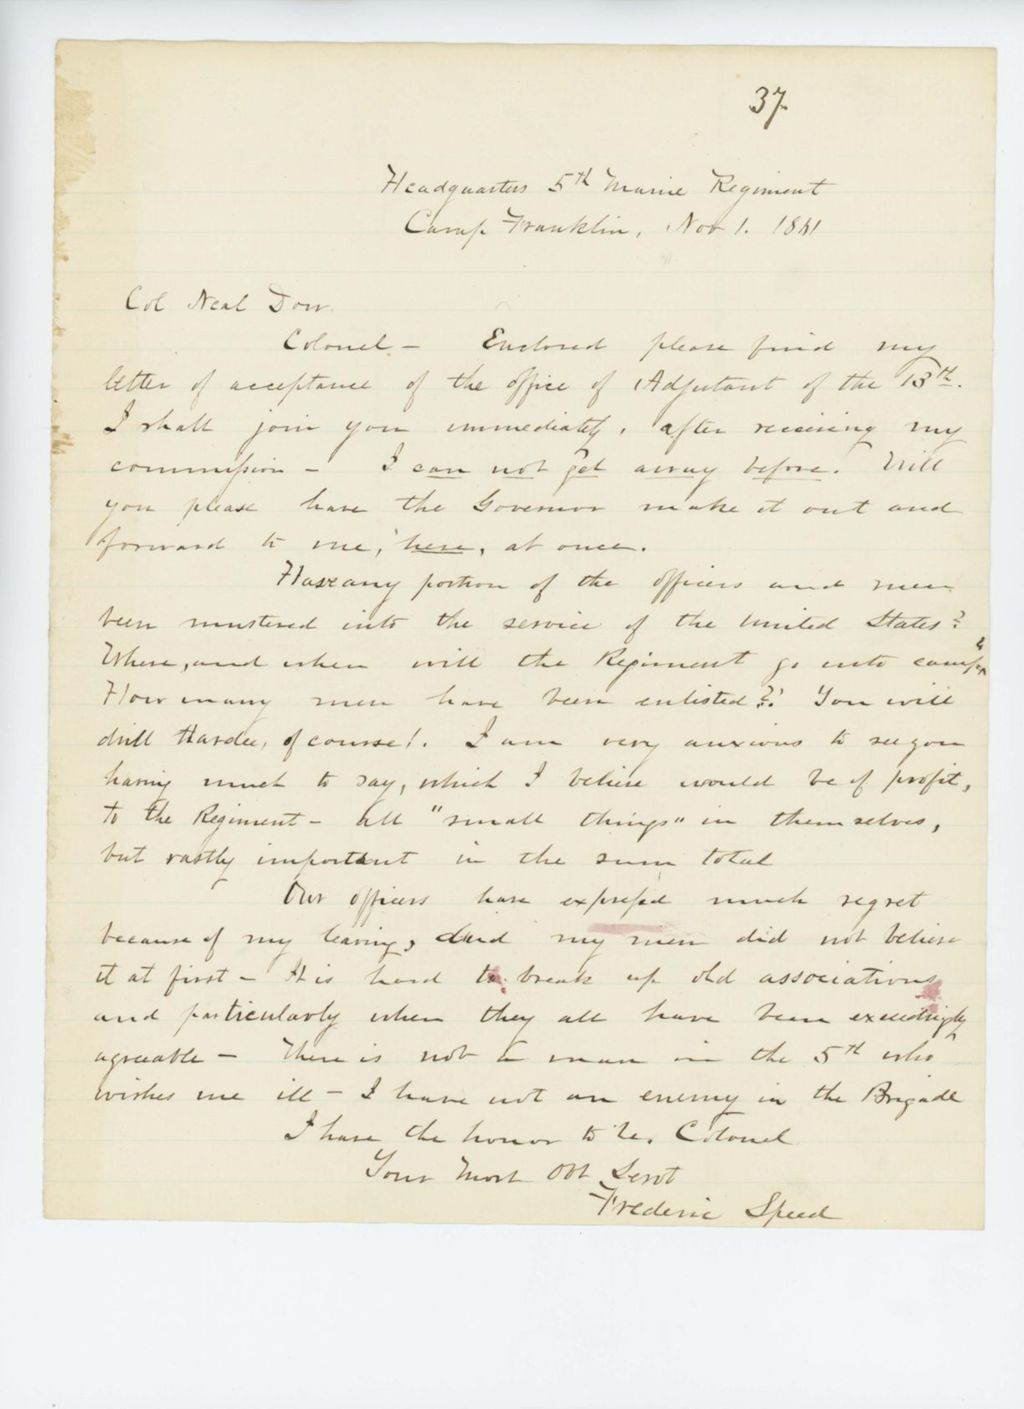 37
Headquarters 5th Maine Regiment
Camp Franklin, Nov 1. 1861
Col Neal Dow
Colonel - Enclosed please find my
letter of acceptance of the office of Adjutant of the 13th.
I shall join you immediately, after receiving my
commission - I can not get away before. Will
you please have the Governor make it out and
forward to me, here, at once.
Have any portion of the officers and men
been mustered into the service of the United States?
Where, and when will the Regiment go into camp?
How many men have been enlisted? You will
drill Hardee, of course!. I am very anxious to see you
having much to say, which I believe would be of profit,
to the Regiment - all "small things" in themselves,
but vastly important in the sum total
Our officers have expressed much regret
because of my leaving, and my men did not believe
it at first - It is hard to break up old associations
and particularly when they all have been exceedingly
agreeable - There is not a man in the 5th who
wishes me ill - I have not an enemy in the Brigade
I have the honor to be, Colonel
Your Most Obt Servt
Frederic Speed